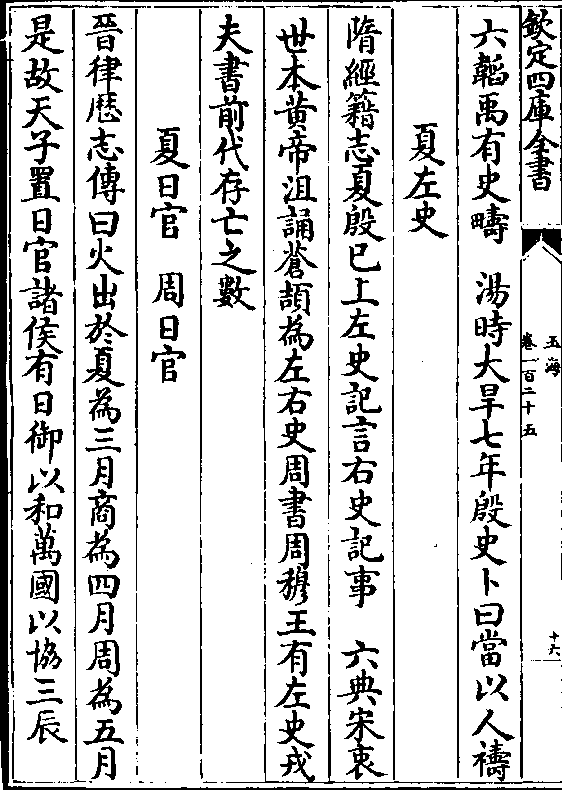 欽定四庫全書
玉海
卷一百二十五
十六
六韜禹有史疇　湯時大旱七年殷史卜曰當以人禱
夏左史
隋經籍志夏殷已上左史記言右史記事　六典宋衷
世本黄帝沮誦蒼頡為左右史周書周穆王有左史戎
夫書前代存亡之數
夏日官　周日官
晉律歴志傳曰火出於夏為三月商為四月周為五月
是故天子置日官諸侯有日御以和萬國以協三辰